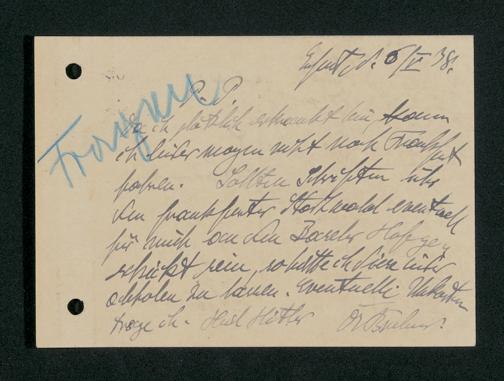 Erfurt, d. 6/IV 38.
P. P.
Fragen
Da ich plötzlich erkrankt bin, kann
ich leider morgen nicht nach Frankfurt
fahren. Sollten Schriften über
den Frankfurter Stadtwald eventuell
für mich an den Basler Hof
geschickt sein, so bitte ich diese
abholen zu lassen. Eventuelle Unkosten
trage ich. Heil Hitler Dr